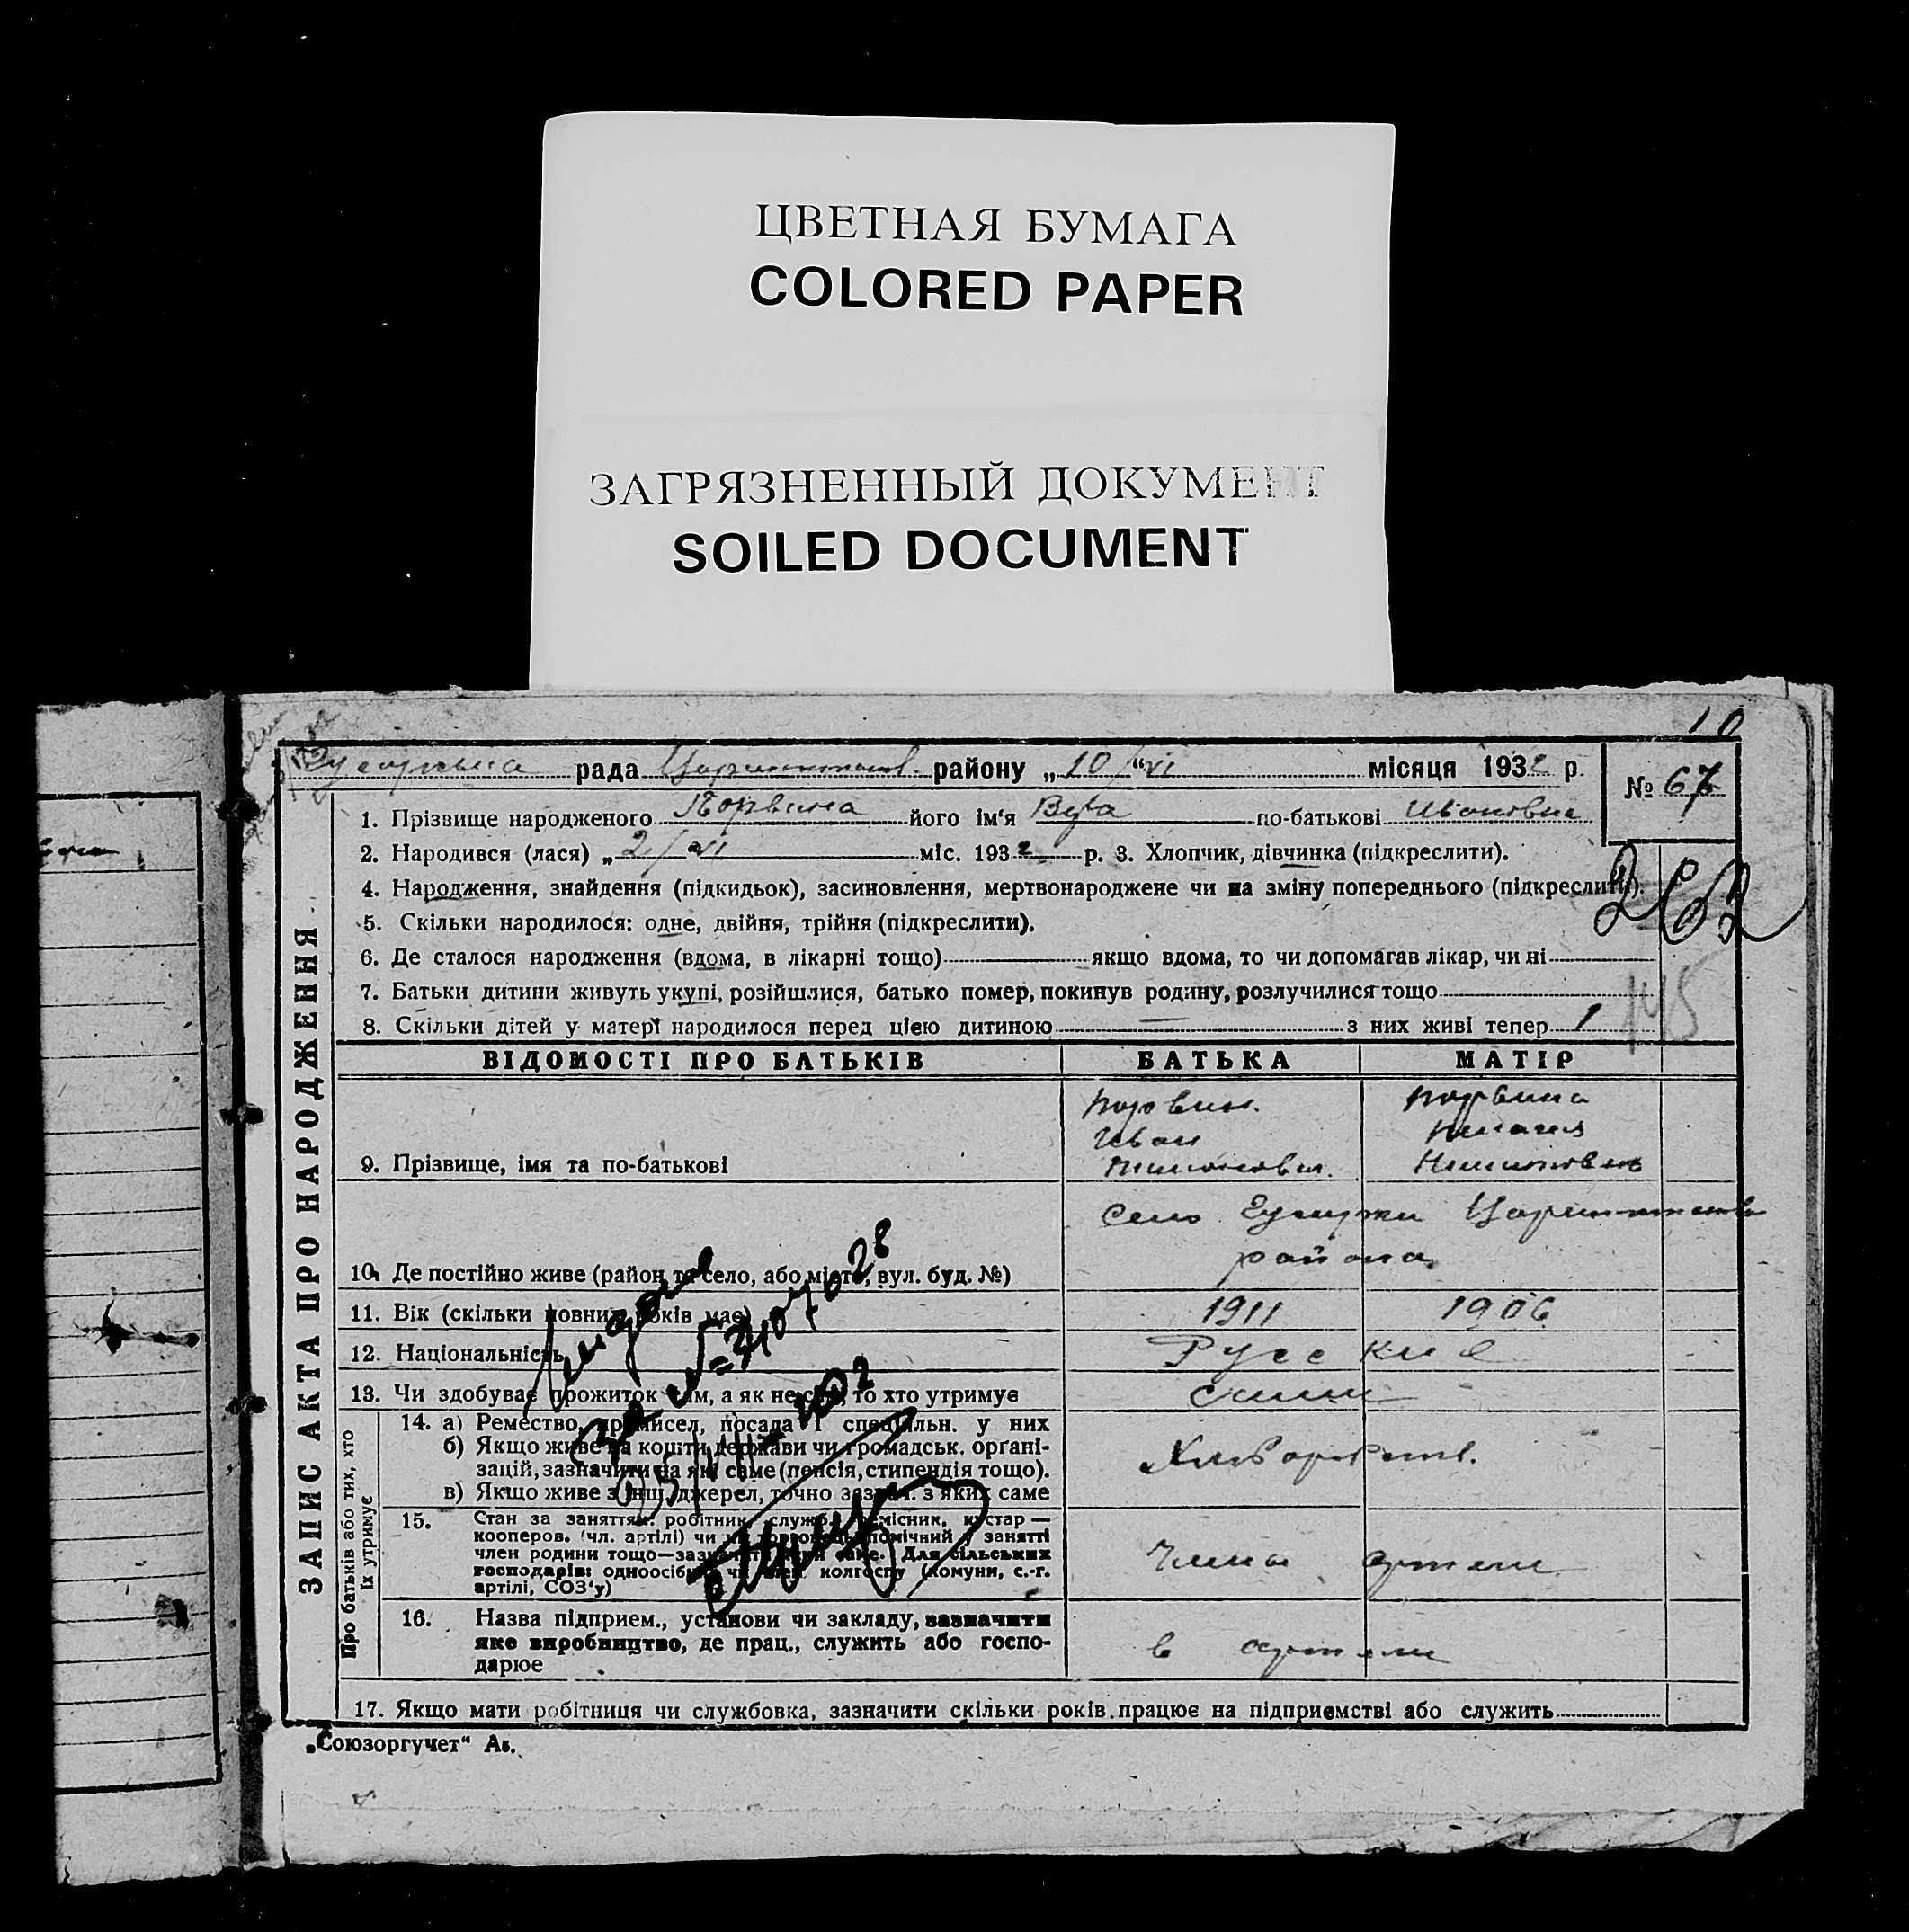 ЦВЕТНАЯ БУМАГА
COLORED PAPER
ЗАГРЯЗНЕННЫЙ ДОКУМЕНТ
SOILED DOCUMENT
10
рада району „10/“VI місяця 1932 р.
№ 67
ЗАПИС АКТА ПРО НАРОДЖЕННЯ
1. Прізвище народженого Порвина його ім‘я Вера по-батькові Ивановна
2. Народився (лася) „2/VI міс. 1932 р. 3. Хлопчик, дівчинка (підкреслити).
4. Народження, знайдення (підкидьок), засиновлення, мертвонароджене чи на зміну попереднього (підкреслити).
5. Скільки народилося: одне, двійня, трійня (підкреслити).
6. Де сталося народження (вдома, в лікарні тощо) якщо вдома, то чи допомагав лікар, чи ні
7. Батьки дитини живуть укупі, розійшлися, батько помер, покинув родину, розлучилися тощо
145
8. Скільки дітей у матері народилося перед цією дитиною — з них живі тепер 1
ВІДОМОСТІ ПРО БАТЬКІВ БАТЬКА МАТІР
Порвин. Порвина
Иван
9. Прізвище, імя та по-батькові
село Царичанского
района
10. Де постійно живе (район та село, або місто, вул. буд. №)
11. Вік (скільки повних років має) 1911 1906
12. Національність Русские
13. Чи здобуває прожиток сам, а як не сам, то хто утримує сами
Про батьків або тих, хто їх утримує
14. а) Ремество, промисел, посада і спеціяльн. у них
б) Якщо живе на кошти держави чи громадськ. орґані-
зацій, зазначити на які саме (пенсія, стипендія тощо).
в) Якщо живе з інш. джерел, точно зазнач. з яких саме
15. Стан за заняттям: робітник, служб., ремісник, кустар —
кооперов. (чл. артілі) чи ні, торговець, помічний у занятті
член родини тощо—зазначити який саме. Для сільських
господарів: одноосібник чи член колгоспу (комуни, с.-г.
артілі, СОЗ‘у)
Члены артели
16. Назва підприєм., установи чи закладу, зазначити
яке виробництво, де прац., служить або госпо-
дарює
в артели
17. Якщо мати робітниця чи службовка, зазначити скільки років працює на підприємстві або служить
„Союзоргучет“